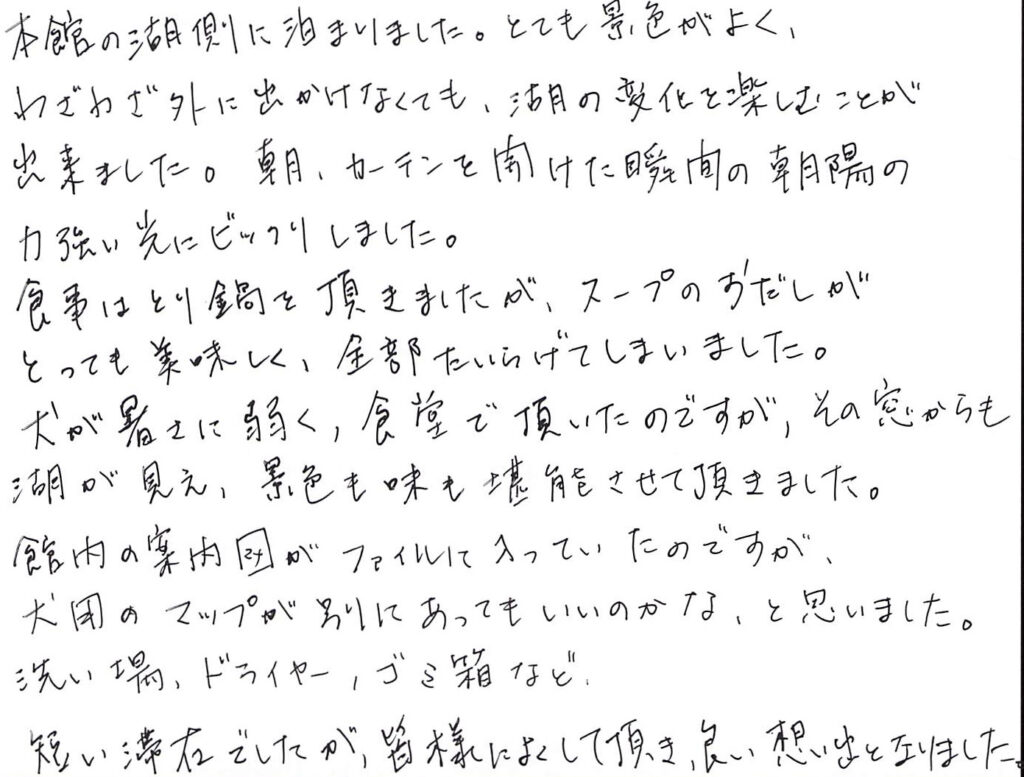 本館の湖側に泊まりました。とても景色がよく、
わざわざ外に出かけなくても、湖の変化を楽しむことが
出来ました。朝、カーテンを開けた瞬間の朝陽の
力強い光にビックリしました。
食事はとり鍋を頂きましたが、スープのおだしが
とっても美味しく、全部たいらげてしまいました。
犬が暑さに弱く、食堂で頂いたのですが、その窓からも
湖が見え、景色も味も堪能させて頂きました。
館内の案内図がファイルに入っていたのですが、
犬用のマップが別にあってもいいのかな、と思いました。
洗い場、ドライヤー、ゴミ箱など、
短い滞在でしたが、皆様によくして頂き、良い想い出となりました。